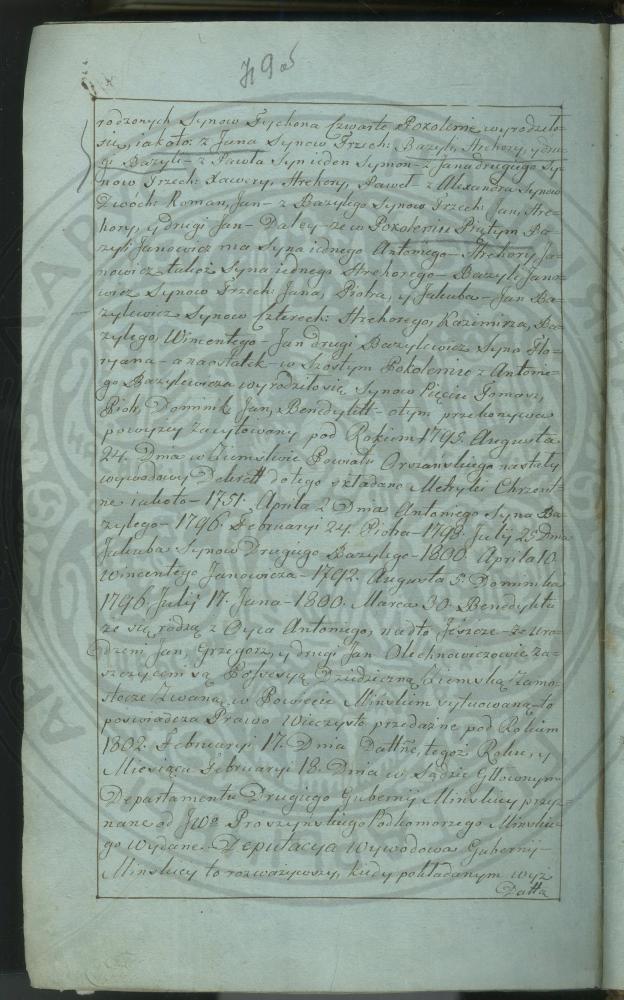 rodzonych Synow Tychona Czwarte Pokolenie wyrodziło
się, iako to: z Jana Synow Trzech: Bazyli, Hrehory, y dru=
gi Bazyli - z Pawła Syn ieden Symon - z Jana drugiego Sy=
now Trzech: Xawery, Hrehory, Paweł - z Alexandra Synow
Dwoch: Roman, Jan - z Bazylego Synow Trzech: Jan, Hre=
hory, y drugi Jan - Daley ze w Pokoleniu Piątym Ba=
zyli Janowicz ma Syna iednego Antoniego - Hrehory Ja=
nowicz takoż Syna iednego Hrehorego - Bazyli Jano=
wicz Synow Trzech: Jana, Piotra, y Jakuba - Jan Ba=
zylewicz Synow Czterech: Hrehorego, Kazimirza, Ba=
zylego, Wincentego - Jan drugi Bazylewicz Syna Flo=
ryana - a na ostatek w Szostym Pokoleniu z Antonie=
go Bazylewicza wyrodziło się Synow Pięciu Tomasz,
Piotr, Dominik, Jan, Benedykt - o tym przekonywa
powyzey Zacytowany pod Rokiem 1795. Augusta
24. Dnia w Ziemstwie Powiatu Orszańskiego nastały
wywodowy Dekrett do tego składane Metryki Chrzest=
ne iako to - 1751. Aprila 2 Dnia Antoniego Syna Ba=
zylego - 1796. Februaryi 24. Piotra - 1798. Julij 25 Dnia
Jakuba Synow Drugiego Bazylego - 1800. Aprila 10.
Wincentego Janowicza - 1792. Augusta 5. Dominika
1796 Julij 17. Jana - 1800. Marca 30. Benedykta
ze się rodzą z Oyca Antoniego, nadto Jeszcze ze Uro=
dzeni Jan, Grzegorz, y drugi Jan Olechnowiczowie za=
szczyceni są Possesyą Dziedziczną Ziemską Zamo=
stocze Zwaną w Powiecie Minskim sytuowaną - to
poswiadcza Prawo Wieczysto przedażne pod Rokiem
1802. Februaryi 17. Dnia Dattne, tegoż Roku, y
Miesiąca Februaryi 18. Dnia w Sądzie Głłownym
Departamentu Drugiego Gubernij Minskiey przyz=
nane od Jwo Proszyńskiego Podkomorzego Minskie=
go wydane - Deputacya Wywodowa Gubernij
Minskiey to rozwazywszy, kiedy pokładanym wyż
Datta